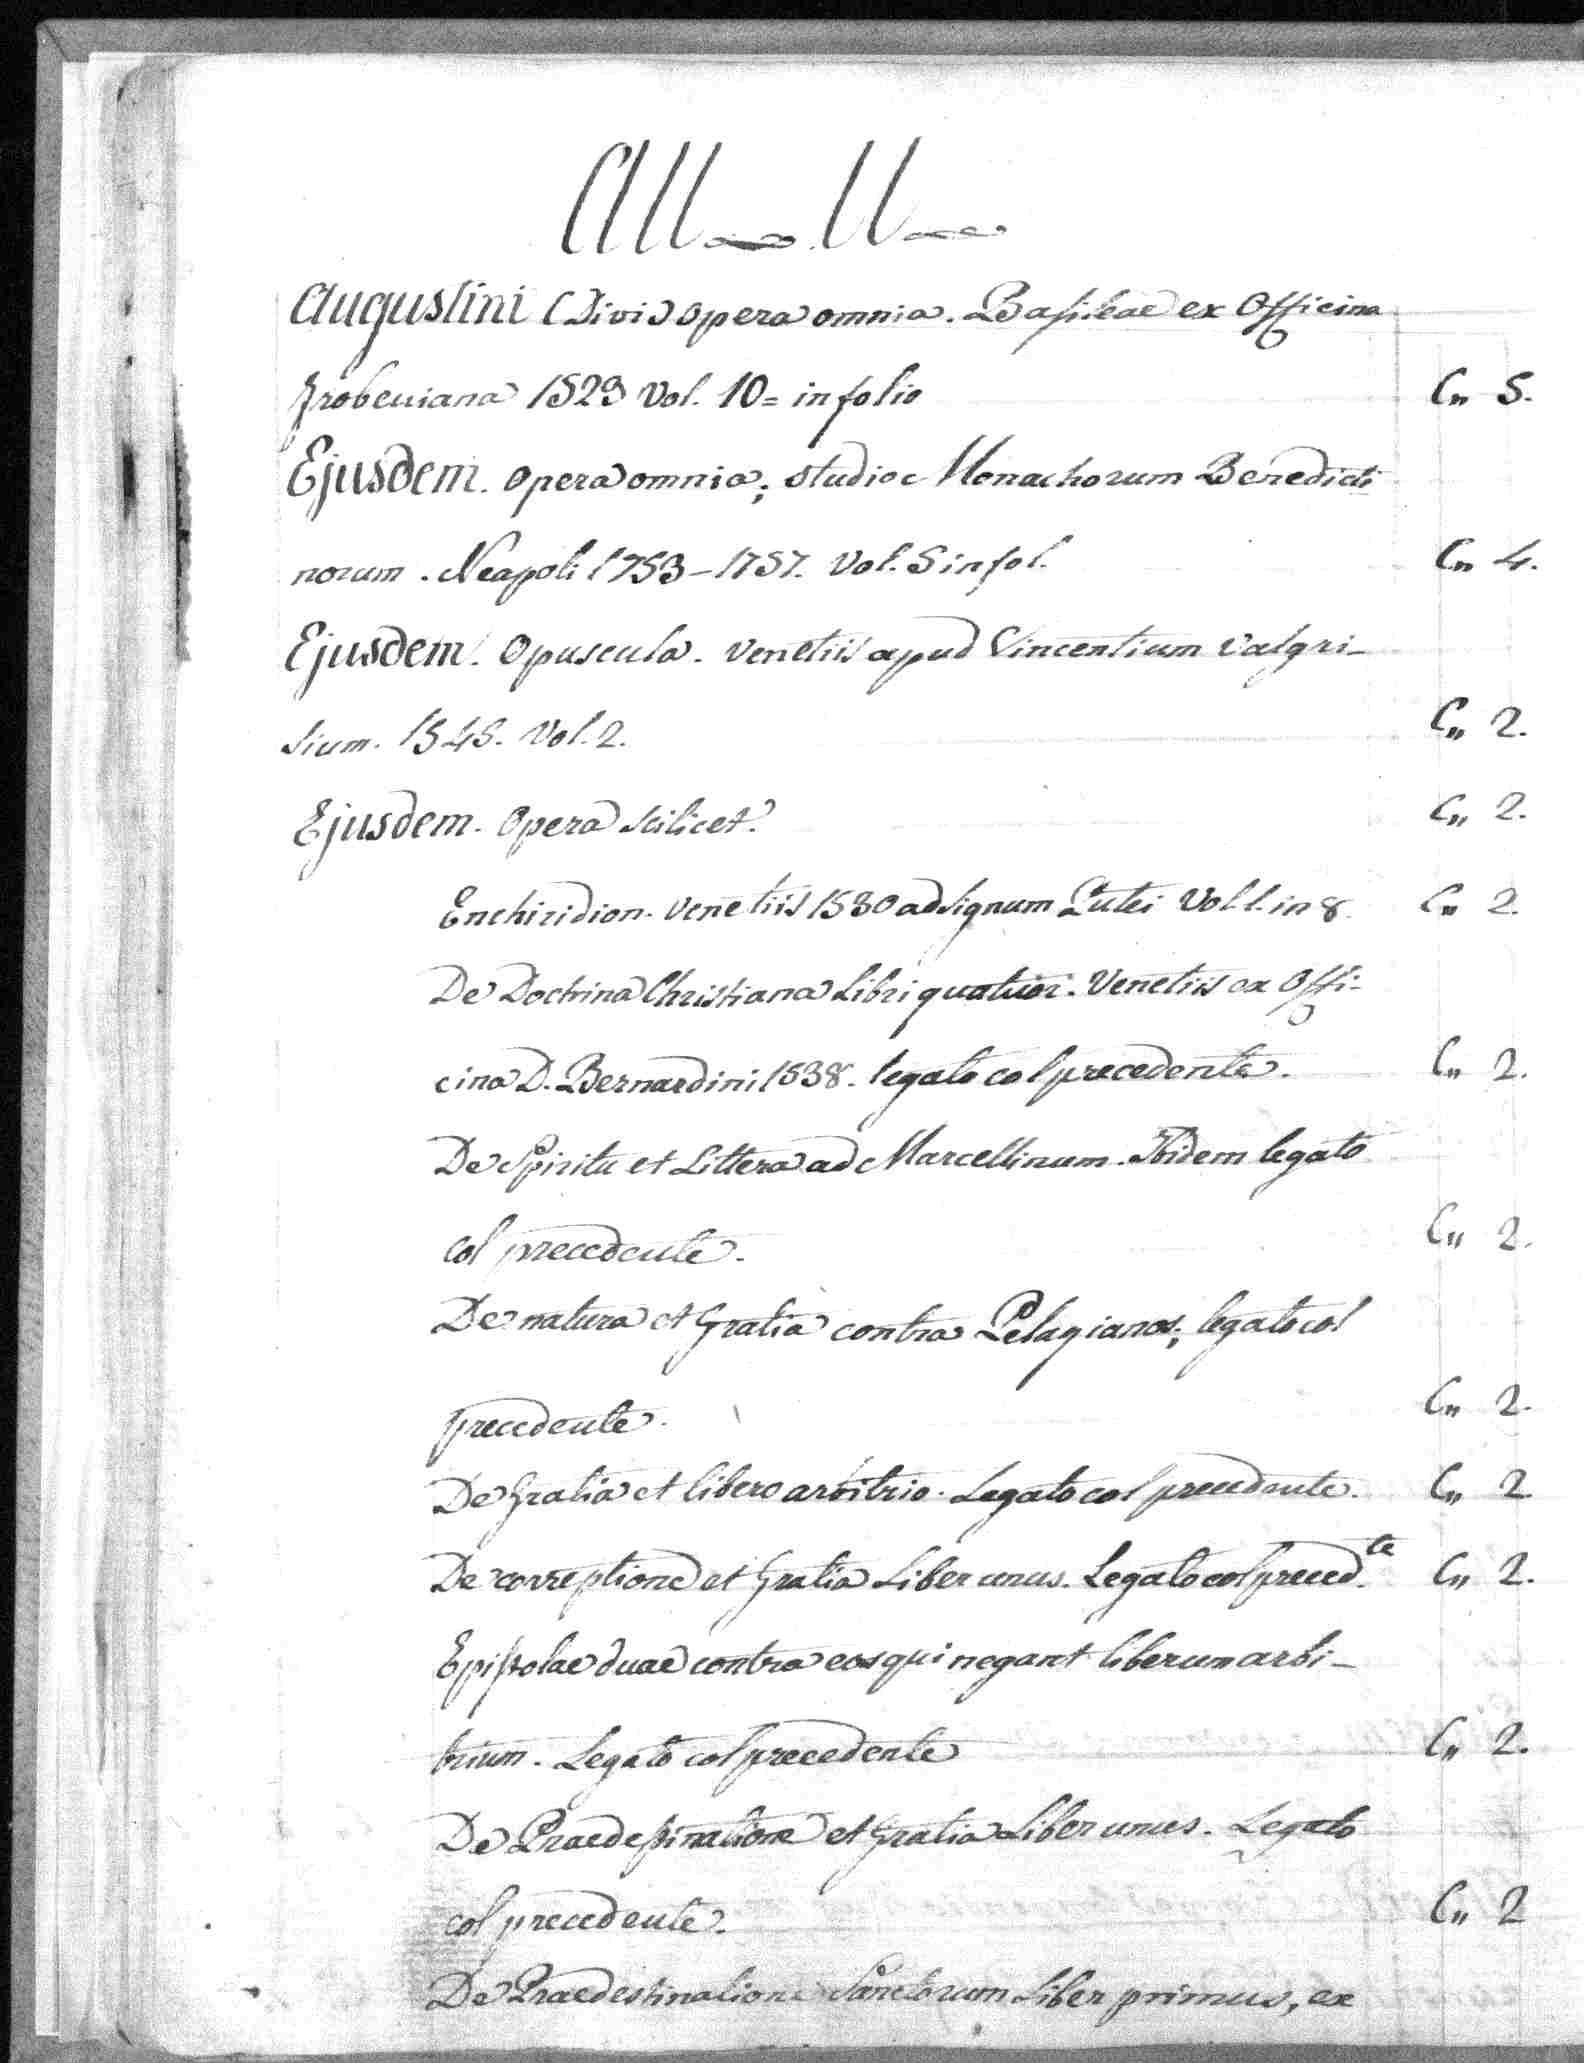 AU ~ U ~
Augustini (Divi) opera omnia. Basileae ex Officina
Frobeniana 1529 Vol. 10= in folio C„ 5.
Ejusdem. opera omnia; studio Monachorum Benedicti
norum. Neapoli 1753-1757. Vol. 5 in fol. C„ 4.
Ejusdem. Opuscula. Venetiis apud Vincentium Valgri-
sium. 1545. Vol. 2. C„ 2.
Ejusdem. Opera scilicet. C„ 2.
Enchiridion. Venetiis 1530 ad signum Putei Vol. 1. in 8. C„ 2.
De Doctrina Christiana Libri quatuor. Venetiis ex Offi-
cina D. Bernardini 1538. legato col precedente. C„ 2.
De Spiritu et Littera ad Marcellinum. Ibidem legato
col precedente. C„ 2.
De natura et Gratia contra Pelagianos; legato col
precedente. C„ 2.
De Gratia et libero arbitrio. Legato col precedente. C„ 2
De correptione et Gratia Liber unus. Legato col preced.te C„ 2.
Epistolae duae contra eos qui negant liberum arbi-
trium. Legato col precedente C„ 2.
De Praedestinatione et Gratia Liber unus. Legato
col precedente. C„ 2
De Praedestinatione Sanctorum Liber primus, ex